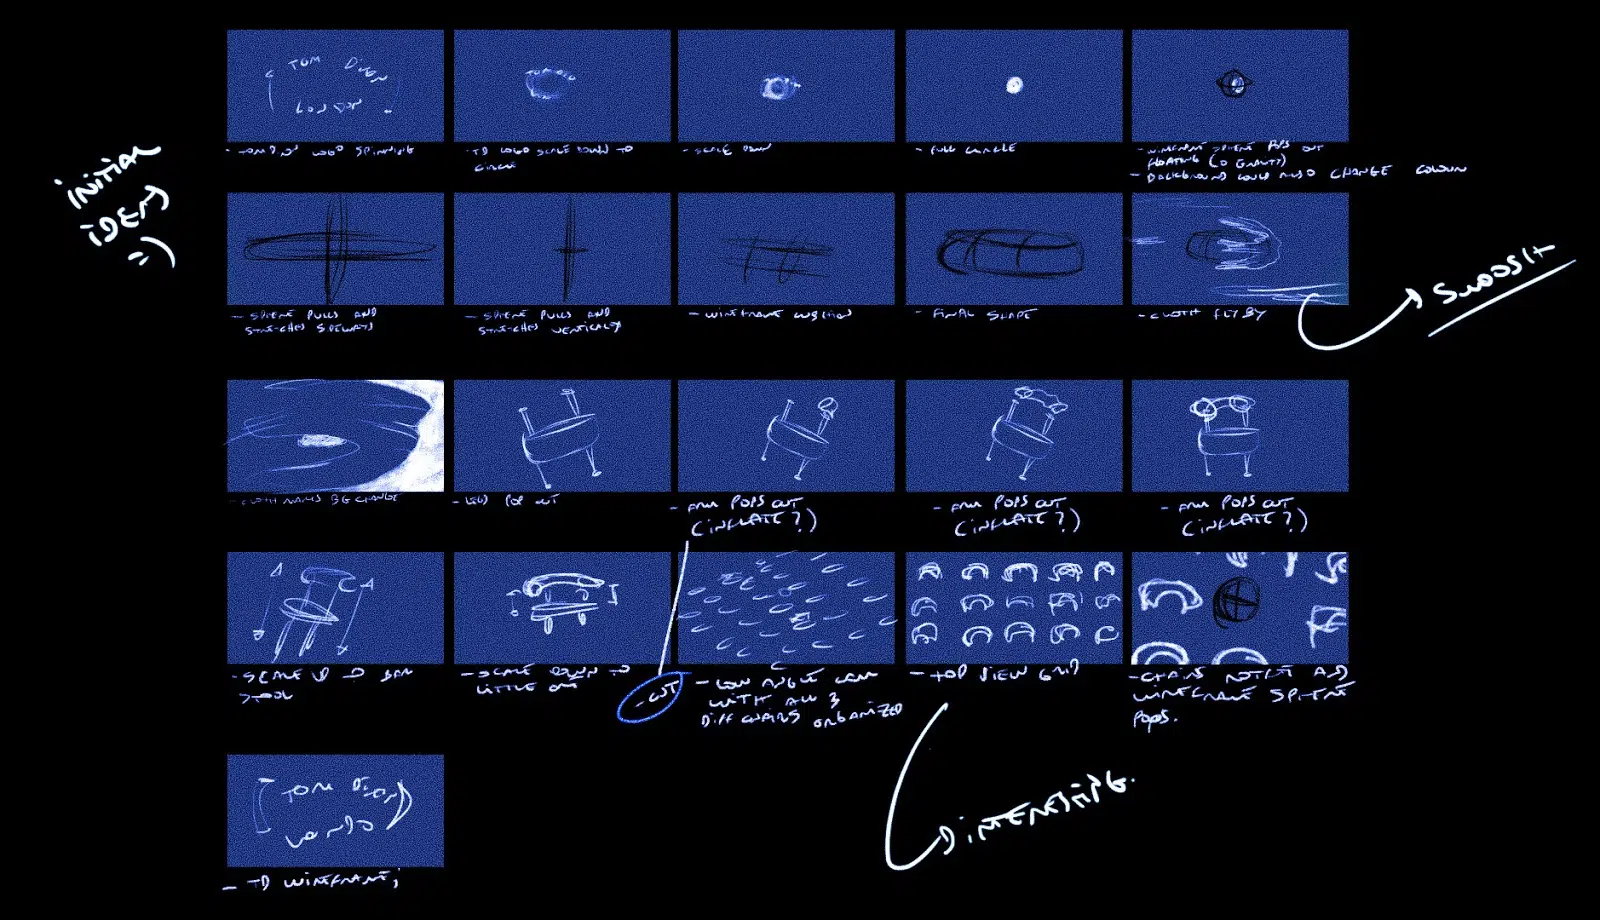 INITIAL
IDEAS
TOM DIXON
LONDON
- TOM DIXON LOGO SPINNING
- TD LOGO SCALE DOWN TO
CIRCLE
- SCALE DOWN
- FULL CIRCLE
- WIREFRAME SPHERE POPS OUT
FLOATING (0 GRAVITY)
- BACKGROUND COULD ALSO CHANGE COLOUR
- SPHERE PULLS AND
STRETCHES SIDEWAYS
- SPHERE PULLS AND
STRETCHES VERTICALLY
- WIREFRAME CUSHION
- FINAL SHAPE
- CLOTH FLY BY
SWOOSH
- CLOTH MAKES BG CHANGE
- LEGS POP OUT
- ARM POPS OUT
(INFLATE?)
- ARM POPS OUT
(INFLATE?)
- ARM POPS OUT
(INFLATE?)
- SCALE UP TO BAR
STOOL
- SCALE DOWN TO
LITTLE ONE
- CUT
- LOW ANGLE CAM
WITH ALL 3
DIFF CHAIRS ORGANIZED
- TOP VIEW GRID
- CHAIRS ROTATE AND
WIREFRAME SPHERE
POPS.
INTERESTING.
TOM DIXON
LONDON
- TD WIREFRAME;